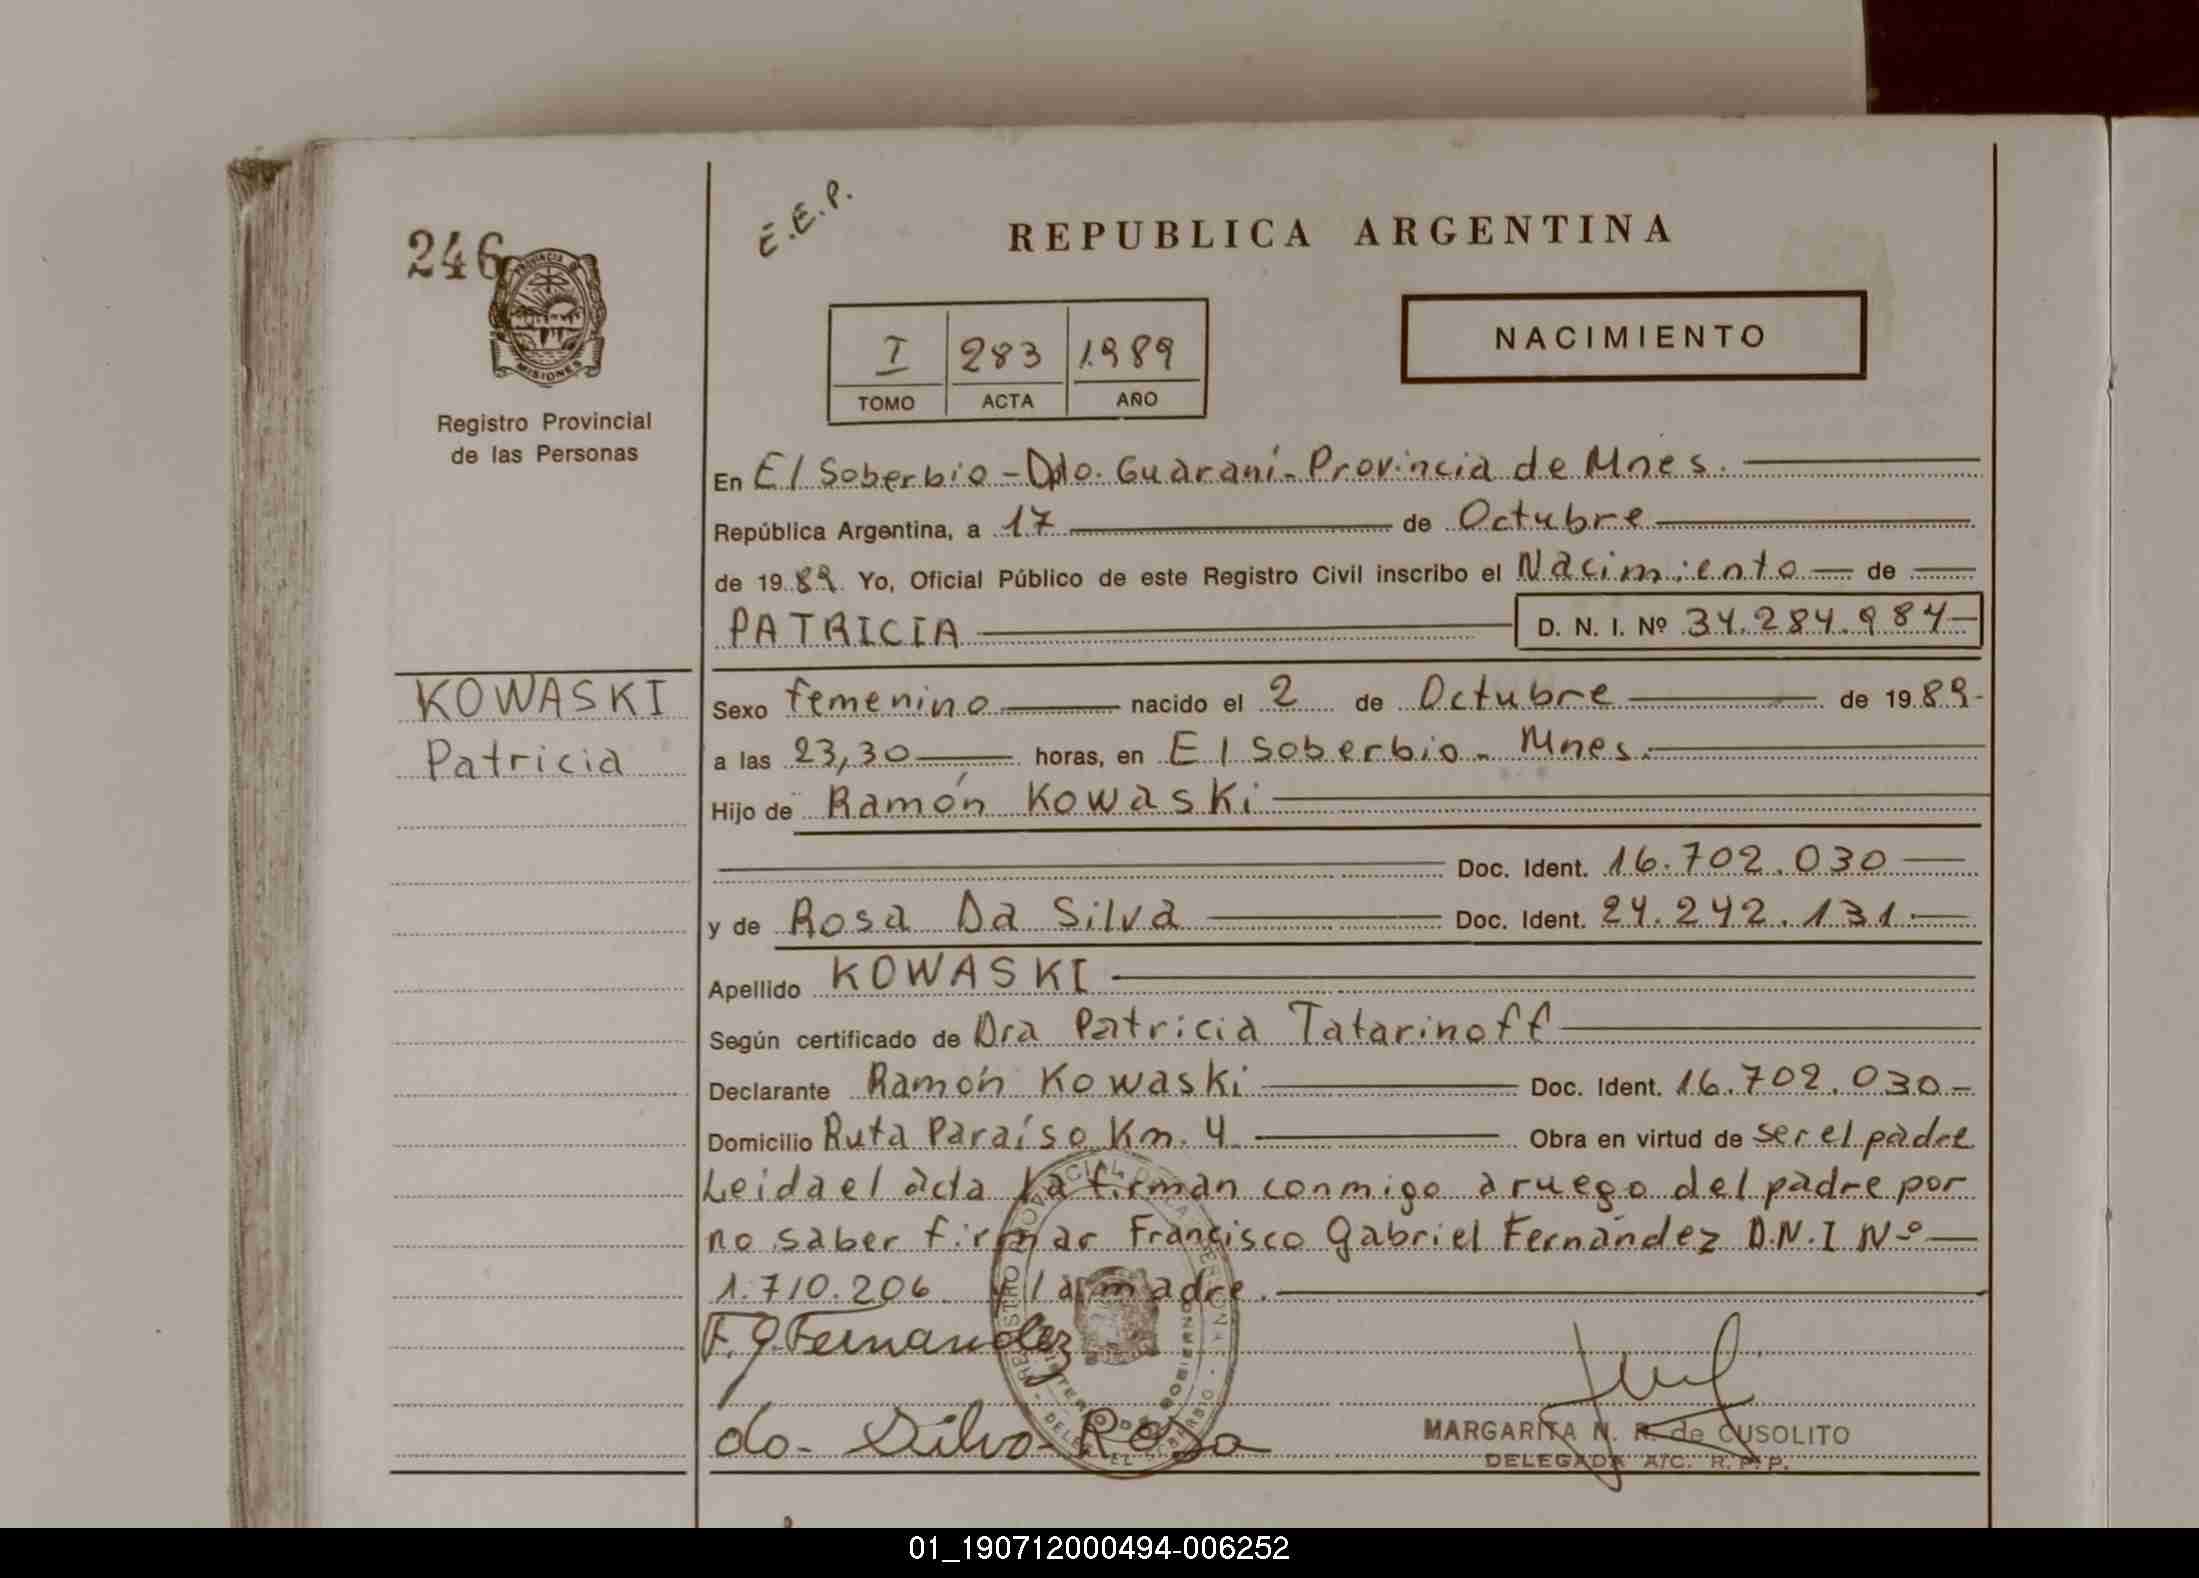 E.E.P.
REPUBLICA ARGENTINA
246
PROVINCIA DE
MISIONES
NACIMIENTO
I 283 1989
TOMO ACTA AÑO
Registro Provincial
de las Personas
En El Soberbio - Dpto. Guaraní - Provincia de Mnes.
República Argentina, a 17 de Octubre
de 1989 Yo, Oficial Público de este Registro Civil inscribo el Nacimiento de
PATRICIA D. N. I. Nº 34.284.984
KOWASKI
Patricia
Sexo femenino nacido el 2 de Octubre de 1989
a las 23,30 horas, en El Soberbio - Mnes.
Hijo de Ramón Kowaski
Doc. Ident. 16.702.030
y de Rosa Da Silva Doc. Ident. 24.242.131
Apellido KOWASKI
Según certificado de Dra Patricia Tatarinoff
Declarante Ramón Kowaski Doc. Ident. 16.702.030
Domicilio Ruta Paraíso Km. 4 Obra en virtud de ser el padre
Leida el acta la firman conmigo a ruego del padre por
no saber firmar Francisco Gabriel Fernández D.N.I Nº
1.710.206 y la madre.
F. G. Fernandez
da Silva Rosa
MARGARITA N. R. de CUSOLITO
DELEGADA A/C. R. P. P.
01_190712000494-006252